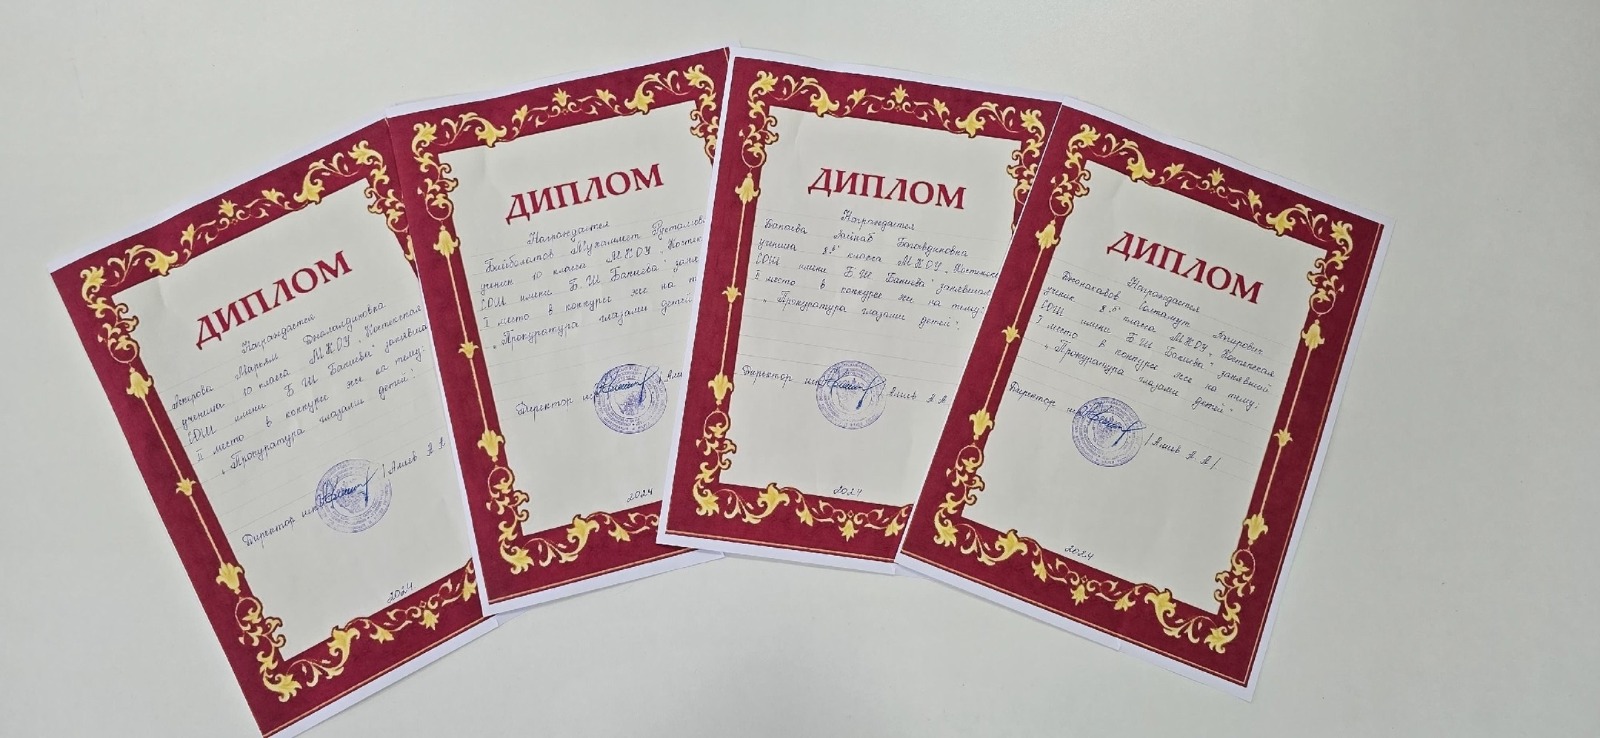 ДИПЛОМ
Награждается
Марьям Джамалдиновна
ученица 10 класса МКОУ "Костекская
СОШ имени Б. Ш Бакиева" занявшая
II место в конкурсе эссе на тему:
"Прокуратура глазами детей".
Директор / Алиев А А
2024
ДИПЛОМ
Награждается
Бийболатов Мухаммат
ученик 10 класса МКОУ "Костек
СОШ имени Б. Ш Бакиева", заня
I место в конкурсе эссе на т
"Прокуратура глазами детей"
Директор / Али
2024
ДИПЛОМ
Награждается
Бакаева Зайнаб Багавдиновна
ученица 8 класса МКОУ "Костекск
СОШ имени Б. Ш Бакиева" занявшая
II место в конкурсе эссе на тему:
"Прокуратура глазами детей".
Директор Алиев А. А.
2024
ДИПЛОМ
Награждается
Солтамут
ученик 8 класса МКОУ "Костекская
СОШ имени Б. Ш Бакиева" занявший
I место в конкурсе эссе на тему:
"Прокуратура глазами детей".
Директор / Алиев А А /
2024